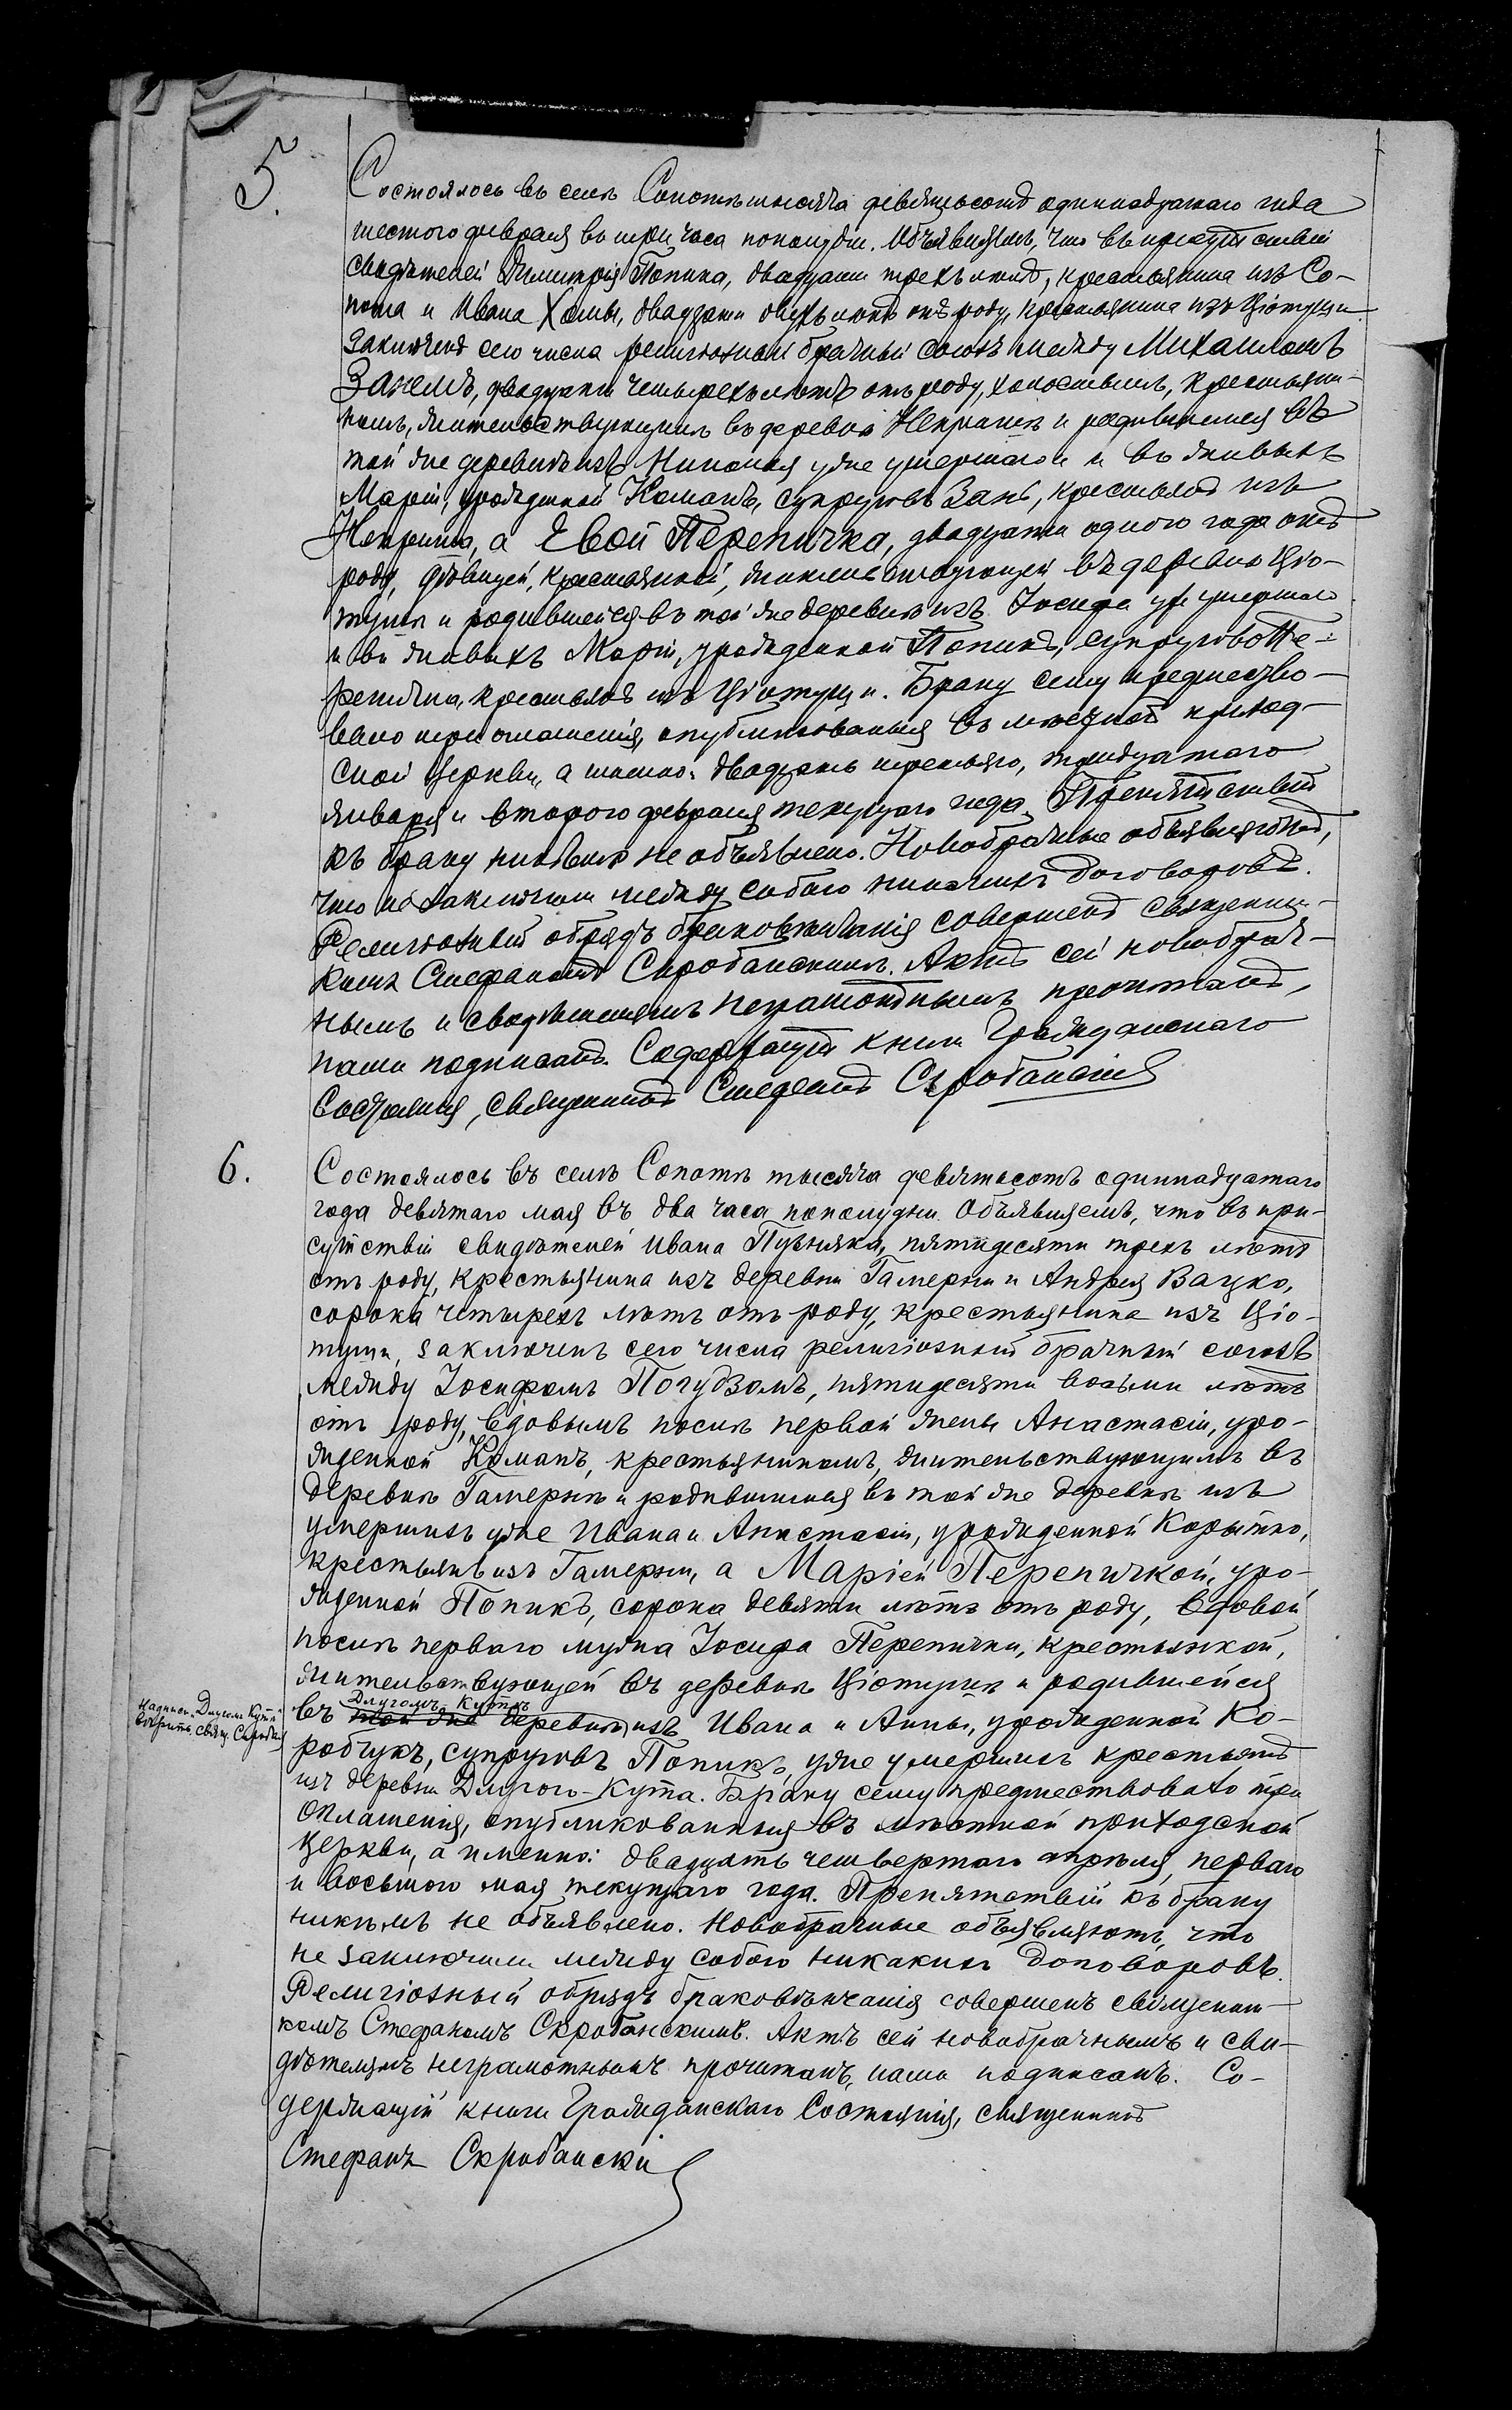 5.
Состоялось въ селѣ Сопотѣ тысяча девятьсотъ одиннадцатаго года
шестого февраля въ три часа пополудни. Объявляемъ, что въ присутствіи
свидѣтелей Димитрія Попика, двадцати трехъ лѣтъ, крестьянина изъ Со-
пота и Ивана Хомы, двадцати двухъ лѣтъ отъ роду, крестьянина изъ Ціотуши
заключенъ сего числа религіозный брачный союзъ между Михаиломъ
Занемъ, двадцати четырехъ лѣтъ отъ роду, холостымъ, крестьяни-
номъ, жительствующимъ въ деревнѣ и родившимся въ
той же деревнѣ изъ Николая уже умершаго и въ живыхъ
Маріи, урожденной Команъ, супруговъ Зань, крестьянъ изъ
а Евой Перепичка, двадцати одного года отъ
роду, дѣвицей, крестьянкой, жительствующей въ деревнѣ Ціо-
тушѣ и родившейся въ той же деревнѣ изъ Іосифа уже умершаго
и въ живыхъ Маріи, урожденной Попикъ, супруговъ Пе-
репичка, крестьянъ изъ Ціотуши. Браку сему предшество-
вало три оглашенія, опубликованныя въ мѣстной приход-
ской церкви, а именно: двадцать третьяго, тридцатаго
января и второго февраля текущаго года. Препятствій
къ браку никѣмъ не объявлено. Новобрачные объявляютъ,
что не заключили между собою никакихъ договоровъ.
Религіозный обрядъ браковѣнчанія совершенъ священни-
комъ Стефаномъ Скробанскимъ. Актъ сей новобрач-
нымъ и свидѣтелямъ неграмотнымъ прочитанъ,
нами подписанъ. Содержащій книги Гражданскаго
Состоянія, священникъ Стефанъ Скробанскій
6.
Состоялось въ селѣ Сопотѣ тысяча девятьсотъ одиннадцатаго
года девятаго мая въ два часа пополудни. Объявляемъ, что въ при-
сутствіи свидѣтелей Ивана пятидесяти трехъ лѣтъ
отъ роду, крестьянина изъ деревни Гамерни и Андрея Вацко,
сорока четырехъ лѣтъ отъ роду, крестьянина изъ Ціо-
туши, заключенъ сего числа религіозный брачный союзъ
между Іосифомъ Погудзомъ, пятидесяти восьми лѣтъ
отъ роду, вдовымъ послѣ первой жены Анастасіи, уро-
жденной Команъ, крестьяниномъ, жительствующимъ въ
деревнѣ Гамернѣ и родившимся въ той же деревнѣ изъ
умершихъ уже Ивана и Анастасіи, урожденной Корытко,
крестьянъ изъ Гамерни, а Маріей Перепичкой, уро-
жденной Попикъ, сорока девяти лѣтъ отъ роду, вдовой
послѣ перваго мужа Іосифа Перепички, крестьянкой,
жительствующей въ деревнѣ Ціотушѣ и родившейся
Надпись „Длугомъ Кутѣ“
вѣрить. свящ. Скробанскій
Длугомъ-Кутѣ
въ той же деревнѣ изъ Ивана и Анны, урожденной Ко-
робчукъ, супруговъ Попикъ, уже умершихъ крестьянъ
изъ деревни Длугого-Кута. Браку сему предшествовало три
оглашенія, опубликованныя въ мѣстной приходской
церкви, а именно: двадцать четвертаго апрѣля, перваго
и восьмого мая текущаго года. Препятствій къ браку
никѣмъ не объявлено. Новобрачные объявляютъ, что
не заключили между собою никакихъ договоровъ.
Религіозный обрядъ браковѣнчанія совершенъ священни-
комъ Стефаномъ Скробанскимъ. Актъ сей новобрачнымъ и сви-
дѣтелямъ неграмотнымъ прочитанъ, нами подписанъ. Со-
держащій книги Гражданскаго Состоянія, священникъ
Стефанъ Скробанскій